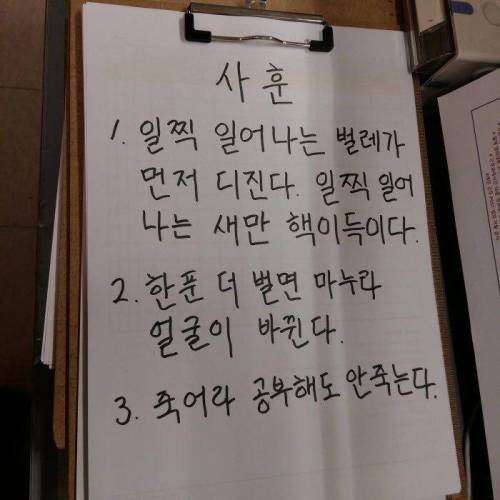 사훈
1. 일찍 일어나는 벌레가
먼저 디진다. 일찍 일어
나는 새만 핵이득이다.
2. 한푼 더 벌면 마누라
얼굴이 바뀐다.
3. 죽어라 공부해도 안죽는다.